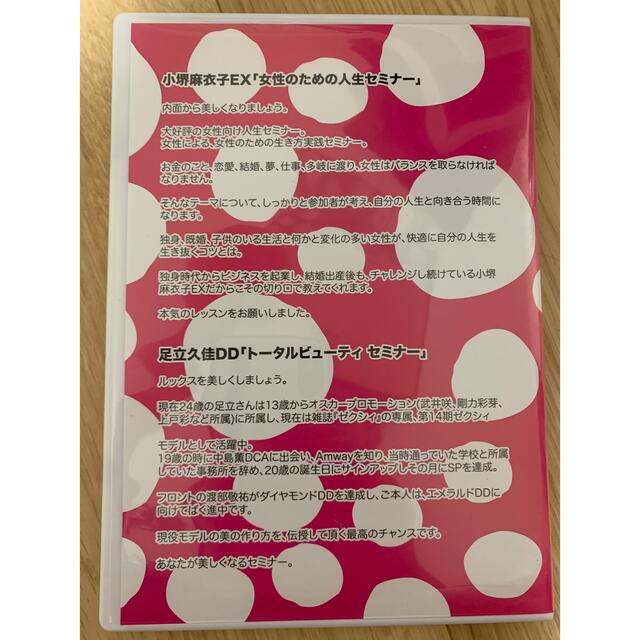 小堺麻衣子EX「女性のための人生セミナー」
内面から美しくなりましょう。
大好評の女性向け人生セミナー。
女性による、女性のための生き方実践セミナー。
お金のこと、恋愛、結婚、夢、仕事、多岐に渡り、女性はバランスを取らなければ
なりません。
そんなテーマについて、しっかりと参加者が考え、自分の人生と向き合う時間に
なります。
独身、既婚、子供のいる生活と何かと変化の多い女性が、快適に自分の人生を
生き抜くコツとは。
独身時代からビジネスを起業し、結婚出産後も、チャレンジし続けている小堺
麻衣子EXだからこその切り口で教えてくれます。
本気のレッスンをお願いしました。
足立久佳DD「トータルビューティ セミナー」
ルックスを美しくしましょう。
現在24歳の足立さんは13歳からオスカープロモーション(武井咲、剛力彩芽、
上戸彩など所属)に所属し、現在は雑誌『ゼクシィ』の専属、第14期ゼクシィ
モデルとして活躍中。
19歳の時に中島薫DCAに出会い、Amwayを知り、当時通っていた学校と所属
していた事務所を辞め、20歳の誕生日にサインアップしその月にSPを達成。
フロントの渡部敬祐がダイヤモンドDDを達成し、ご本人は、エメラルドDDに
向けてばく進中です。
現役モデルの美の作り方を、伝授して頂く最高のチャンスです。
あなたが美しくなるセミナー。